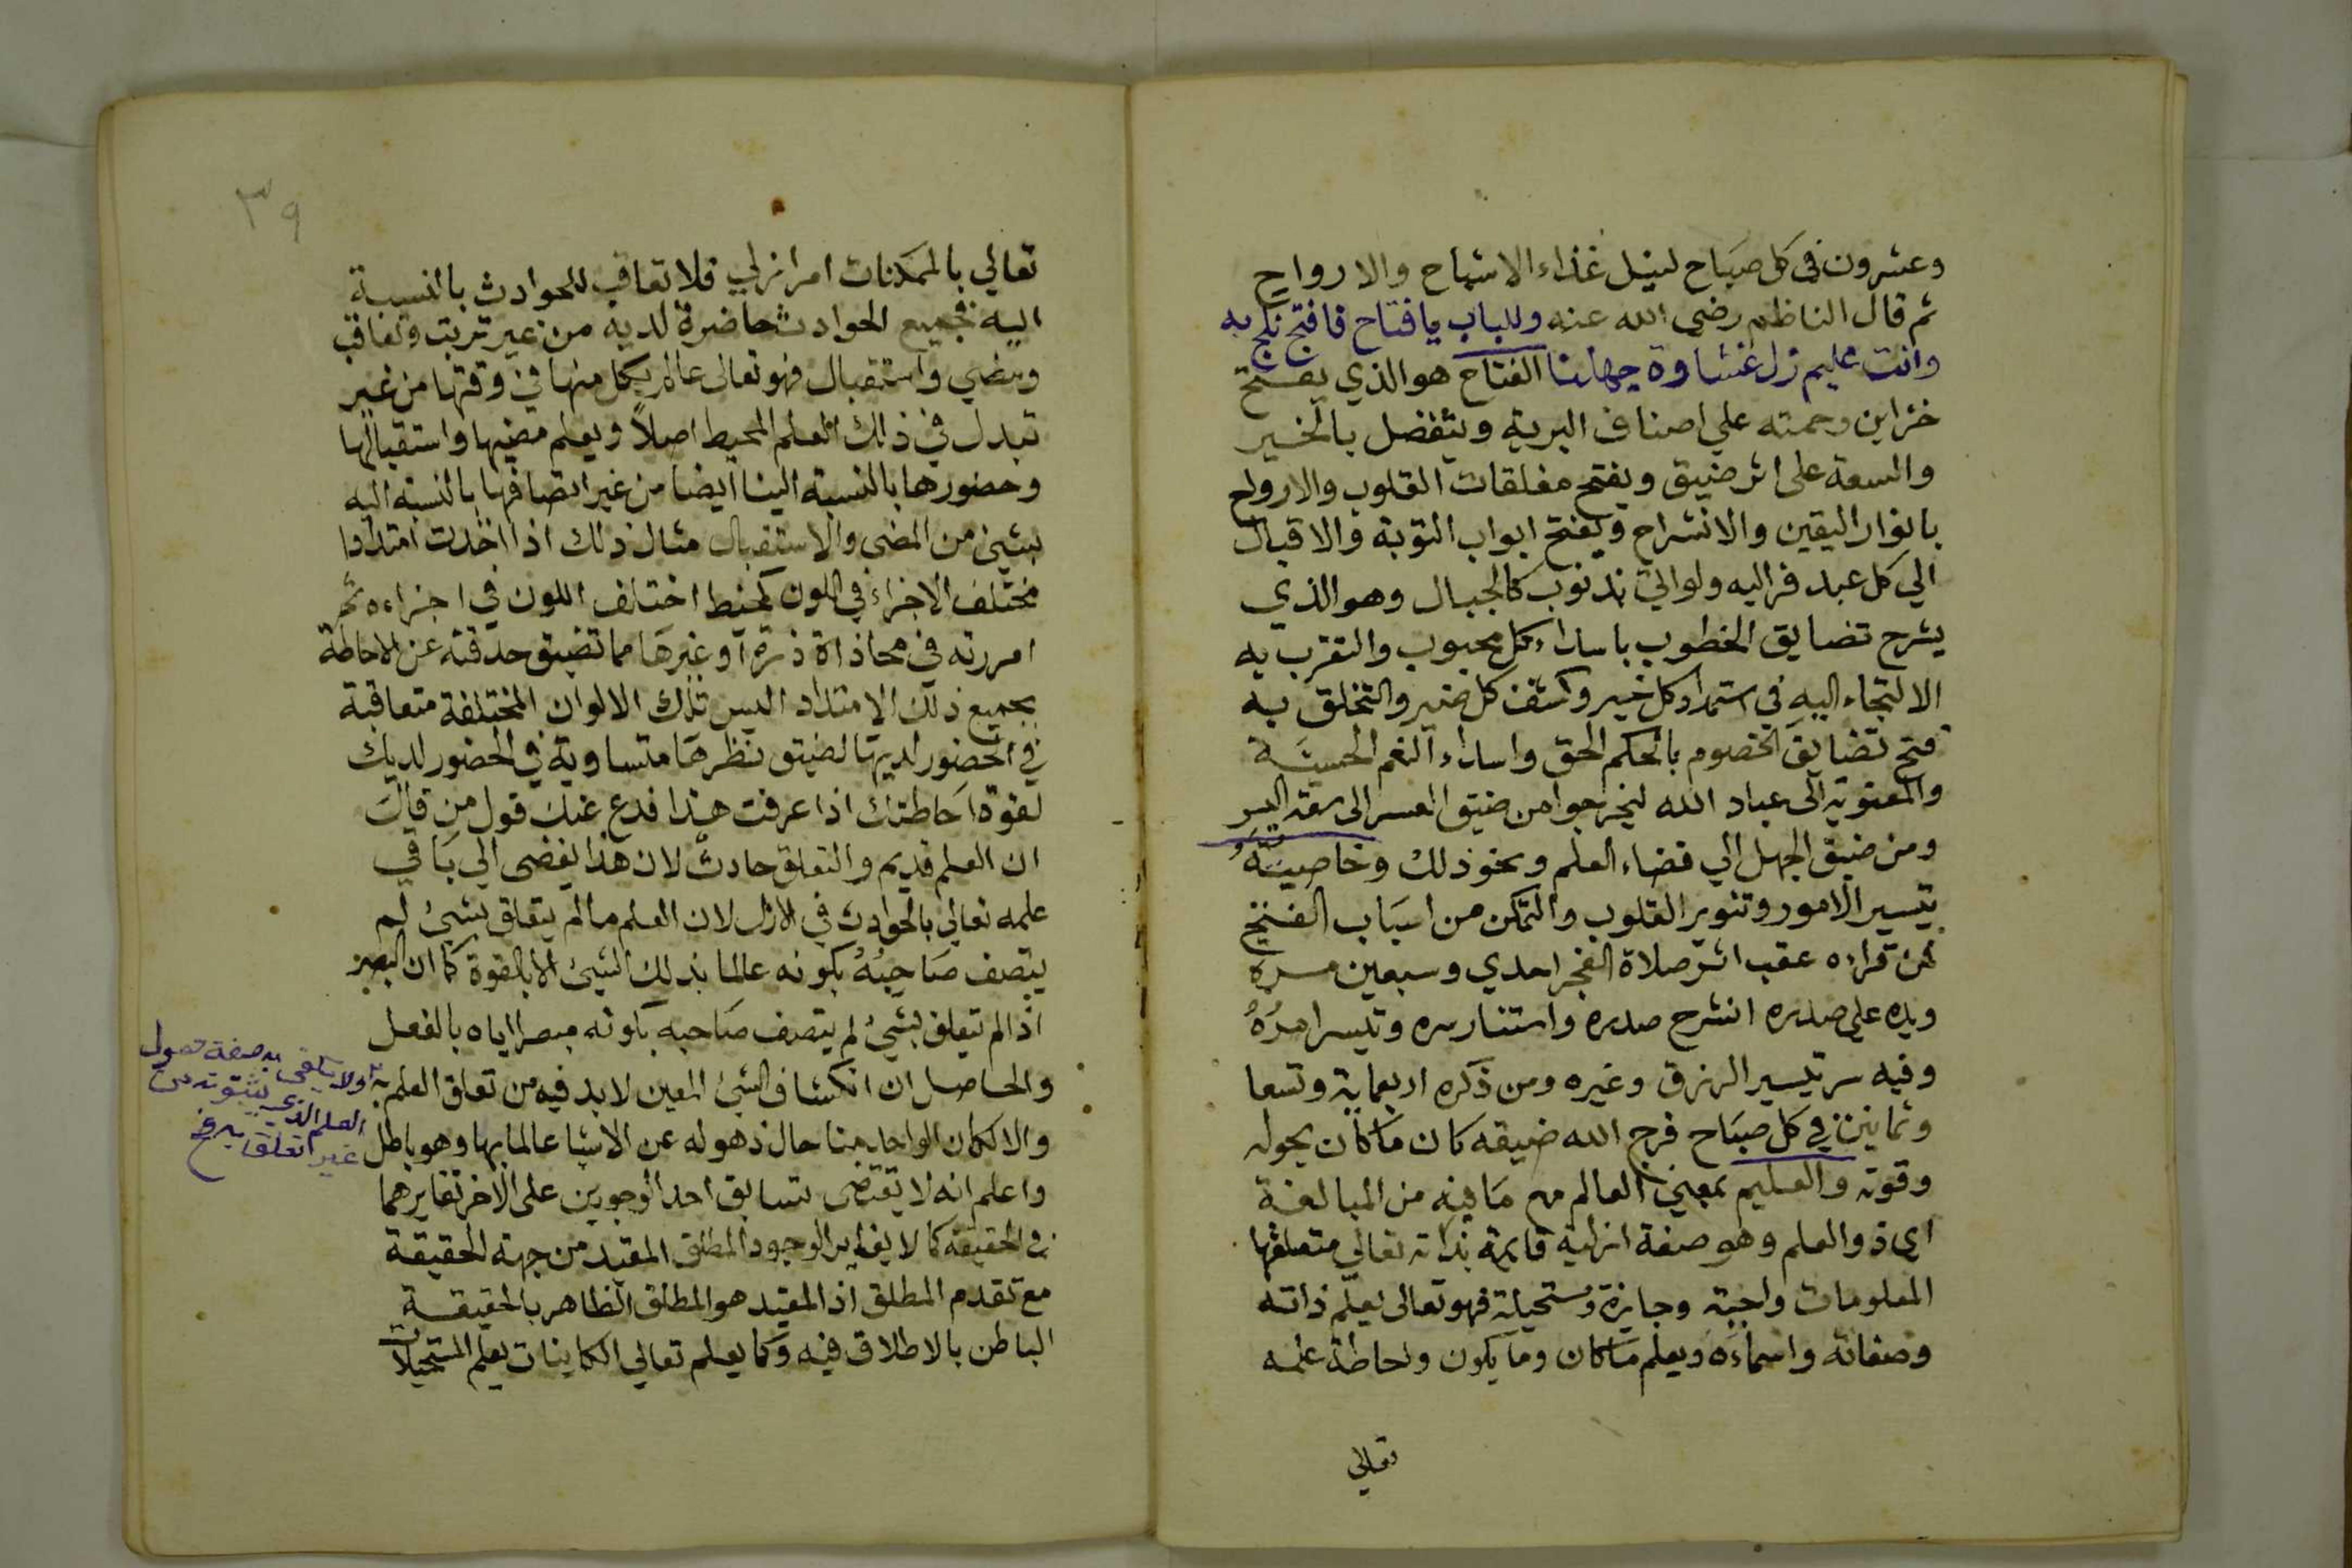 وعشرون فى كل صباح لنيل غذاء الاشباح والارواح
ثم قال الناظم رضى الله عنه وللباب يا فتاح فافتح تكن به
وانت عليم زل غشاوة جهلنا الفتاح هو الذي يفتح
خزاين رحمته علي اصناف البرية ويتفضل بالخير
والسعة على اثر ضيق ويفتح مغلقات القلوب والارواح
بانوار اليقين والانشراح ويفتح ابواب التوبة والاقبال
الي كل عبد فر اليه ولو اتي بذنوب كالجبال وهو الذي
يشرح تضايق الخطوب باسداء كل محبوب والتقرب به
الالتجاء اليه في استمداد كل خير وكشف كل ضير والتخلق به
فتح تضايق الخصوم بالحكم الحق واسداء النعم الحسية
والمعنوية الى عباد الله ليخرجوا من ضيق العسر الى سعة اليسر
ومن ضيق الجهل الي فضاء العلم ونحو ذلك وخاصيته
تيسير الامور وتنوير القلوب والتمكن من اسباب الفتح
فمن قراءه عقب اثر صلاة الفجر احدي وسبعين مرة
ويده علي صدره انشرح صدره واستنار سره وتيسر امره
وفيه سر تيسير الرزق وغيره ومن ذكره اربعماية وتسعا
وثمانين في كل صباح فرج الله ضيقه كان ما كان بحوله
وقوته والعليم بمعني العالم مع ما فيه من المبالغة
اي ذو العلم وهو صفة ازلية قايمة بذاته تعالي متعلقها
المعلومات واجبة وجايزة ومستحيلة فهو تعالى يعلم ذاته
وصفاته واسماءه ويعلم ما كان وما يكون واحاطة علمه
تعالي
٣٩
تعالي بالممكنات امر ازلي فلا تعاقب للحوادث بالنسبة
اليه فجميع الحوادث حاضرة لديه من غير ترتب وتعاقب
ومضي واستقبال فهو تعالى عالم بكل منها في وقتها من غير
تبدل في ذلك العلم المحيط اصلاً ويعلم مضيها واستقبالها
وحضورها بالنسبة الينا ايضا من غير اتصافها بالنسبة اليه
بشئ من المضي والاستقبال مثال ذلك اذا اخذت امتدادا
مختلف الاجزاء في اللون كخيط اختلف اللون في اجزاءه ثم
امررته في محاذاة ذرة او غيرها مما تضيق حدقته عن الاحاطة
بجميع ذلك الامتداد اليس تلك الالوان المختلفة متعاقبة
في الحضور لديها لضيق نظرها متساوية في الحضور لديك
لقوة احاطتك اذا عرفت هذا فدع عنك قول من قال
ان العلم قديم والتعلق حادث لان هذا يفضى الي نافي
علمه تعالي بالحوادث في الازل لان العلم ما لم يتعلق بشئ لم
يتصف صاحبه بكونه عالما بذلك الشئ الا بالقوة كما ان البصر
اذا لم تتعلق بشئ لم يتصف صاحبه بكونه مبصرا اياه بالفعل
والحاصل ان انكشاف الشئ المعين لا بد فيه من تعلق العلم به
ولا يكفى به صفة حصول
العلم الذي بثبوته من
غير تعلقا به غ
والا لكان الواحد منا حال ذهوله عن الاشيا عالما بها وهو باطل
واعلم انه لا يقتضي تسابق احد الوجودين على الاخر تغايرهما
في الحقيقة كما لا يغاير الوجود المطلق المقيد من جهة الحقيقة
مع تقدم المطلق اذ المقيد هو المطلق الظاهر بالحقيقة
الباطن بالاطلاق فيه وكما يعلم تعالي الكاينات يعلم المستحيلات